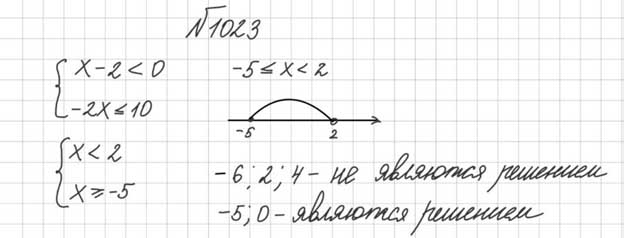 №1023
{ x-2<0
-2x≤10
{ x<2
x≥-5
-5≤x<2
-5 2
-6; 2; 4 - не являются решением
-5; 0 - являются решением